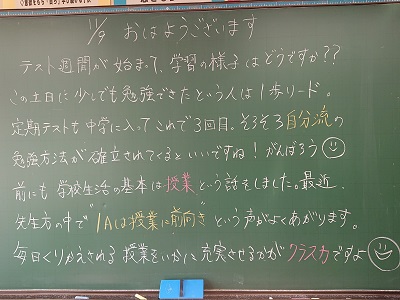 11/9 おはようございます
テスト週間が始まって、学習の様子はどうですか??
この土日に少しでも勉強できたという人は1歩リード。
定期テストも中学に入ってこれで3回目。そろそろ自分流の
勉強方法が確立されてくるといいですね!がんばろう
前にも学校生活の基本は授業という話をしました。最近、
先生方の中で"1Aは授業に前向き"という声がよくあがります。
毎日くりかえされる授業をいかに充実させるかがクラス力ですよ